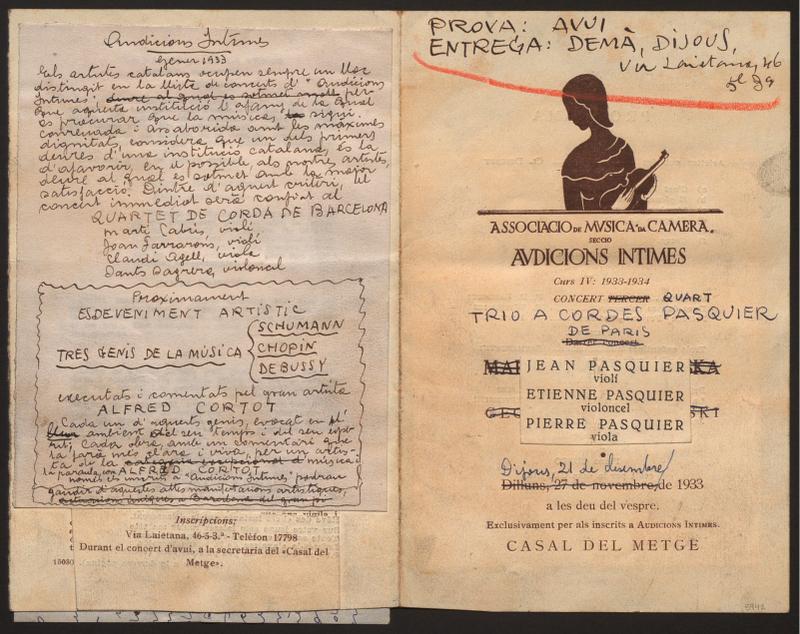 Audicions Intimes
Gener 1933
Els artistes catalans ocupen sempre un lloc
distingit en la llista de concerts d'"Audicions
Intimes", deure al qual es sotmet amb per-
que aquesta institució l'afany de la qual
es procurar que la música, la sigui
conreuada i assaborida amb les màximes
dignitats, considera que un dels primers
deures d'una institució catalana, és la
d'afavorir, en el possible, als nostres artistes,
deure al qual es sotmet amb la major
satisfacció. Dintre d'aquest criteri, el
concert immediat serà confiat al
QUARTET DE CORDA DE BARCELONA
Martí Cabús, violí
Joan Farrarons, violí
Claudi Agell, viola
Dants Sagrera, violoncel
Proximament
ESDEVENIMENT ARTÍSTIC
TRES GENIS DE LA MÚSICA
SCHUMANN
CHOPIN
DEBUSSY
executats i comentats pel gran artista
ALFRED CORTOT
Cada un d'aquests genis, evocat en l'
ambient del seu temps i del seu espe-
rit; Cada obra, amb un comentari que
la farà més clara i viva, per un artis-
ta de la categoria excepcional d música i
la paraula, com ALFRED CORTOT.
només els inscrits a "Audicions Intimes" podran
gaudir d'aquestes altes manifestacions artístiques,
Inscripcions:
Via Laietana, 46-5-3.ª - Telèfon 17798
Durant el concert d'avui, a la secretaria del «Casal del
Metge».
15030
PROVA: AVUI
ENTREGA: DEMÀ, DIJOUS,
Via Laietana, 46
5è 3a
ASSOCIACIO DE MVSICA DA CAMERA.
SECCIO
AVDICIONS INTIMES
Curs IV: 1933-1934
CONCERT TERCER QUART
TRIO A CORDES PASQUIER
DE PARIS
Darrer concert
MAI JEAN PASQUIER KA
violí
ETIENNE PASQUIER
violoncel
PIERRE PASQUIER
viola
Dijous, 21 de desembre
Dilluns, 27 de novembre, de 1933
a les deu del vespre.
Exclusivament per als inscrits a AUDICIONS INTIMES.
CASAL DEL METGE